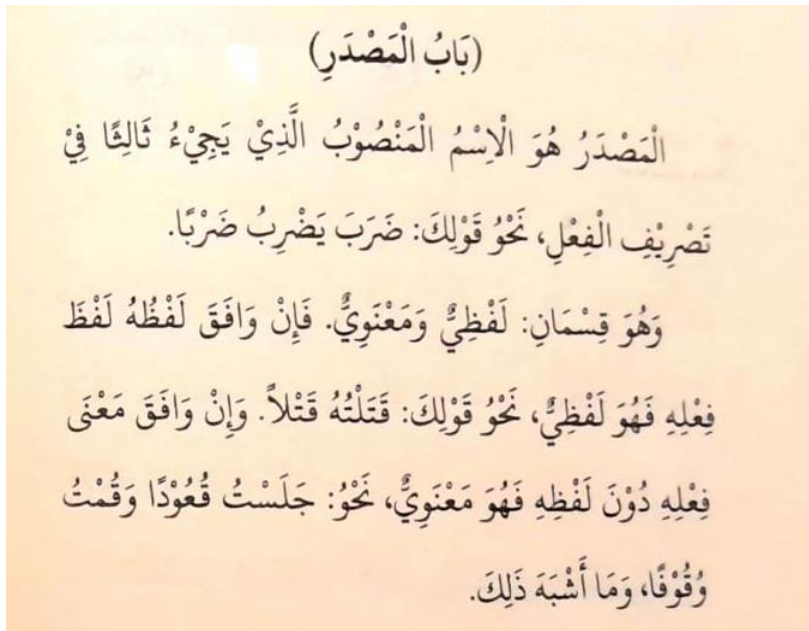 (بَابُ الْمَصْدَرِ)
الْمَصْدَرُ هُوَ الْاِسْمُ الْمَنْصُوْبُ الَّذِيْ يَجِيْءُ ثَالِثًا فِيْ
تَصْرِيْفِ الْفِعْلِ، نَحْوُ قَوْلِكَ: ضَرَبَ يَضْرِبُ ضَرْبًا.
وَهُوَ قِسْمَانِ: لَفْظِيٌّ وَمَعْنَوِيٌّ. فَإِنْ وَافَقَ لَفْظُهُ لَفْظَ
فِعْلِهِ فَهُوَ لَفْظِيٌّ، نَحْوُ قَوْلِكَ: قَتَلْتُهُ قَتْلاً. وَإِنْ وَافَقَ مَعْنَى
فِعْلِهِ دُوْنَ لَفْظِهِ فَهُوَ مَعْنَوِيٌّ، نَحْوُ: جَلَسْتُ قُعُوْدًا وَقُمْتُ
وُقُوْفًا، وَمَا أَشْبَهَ ذَلِكَ.